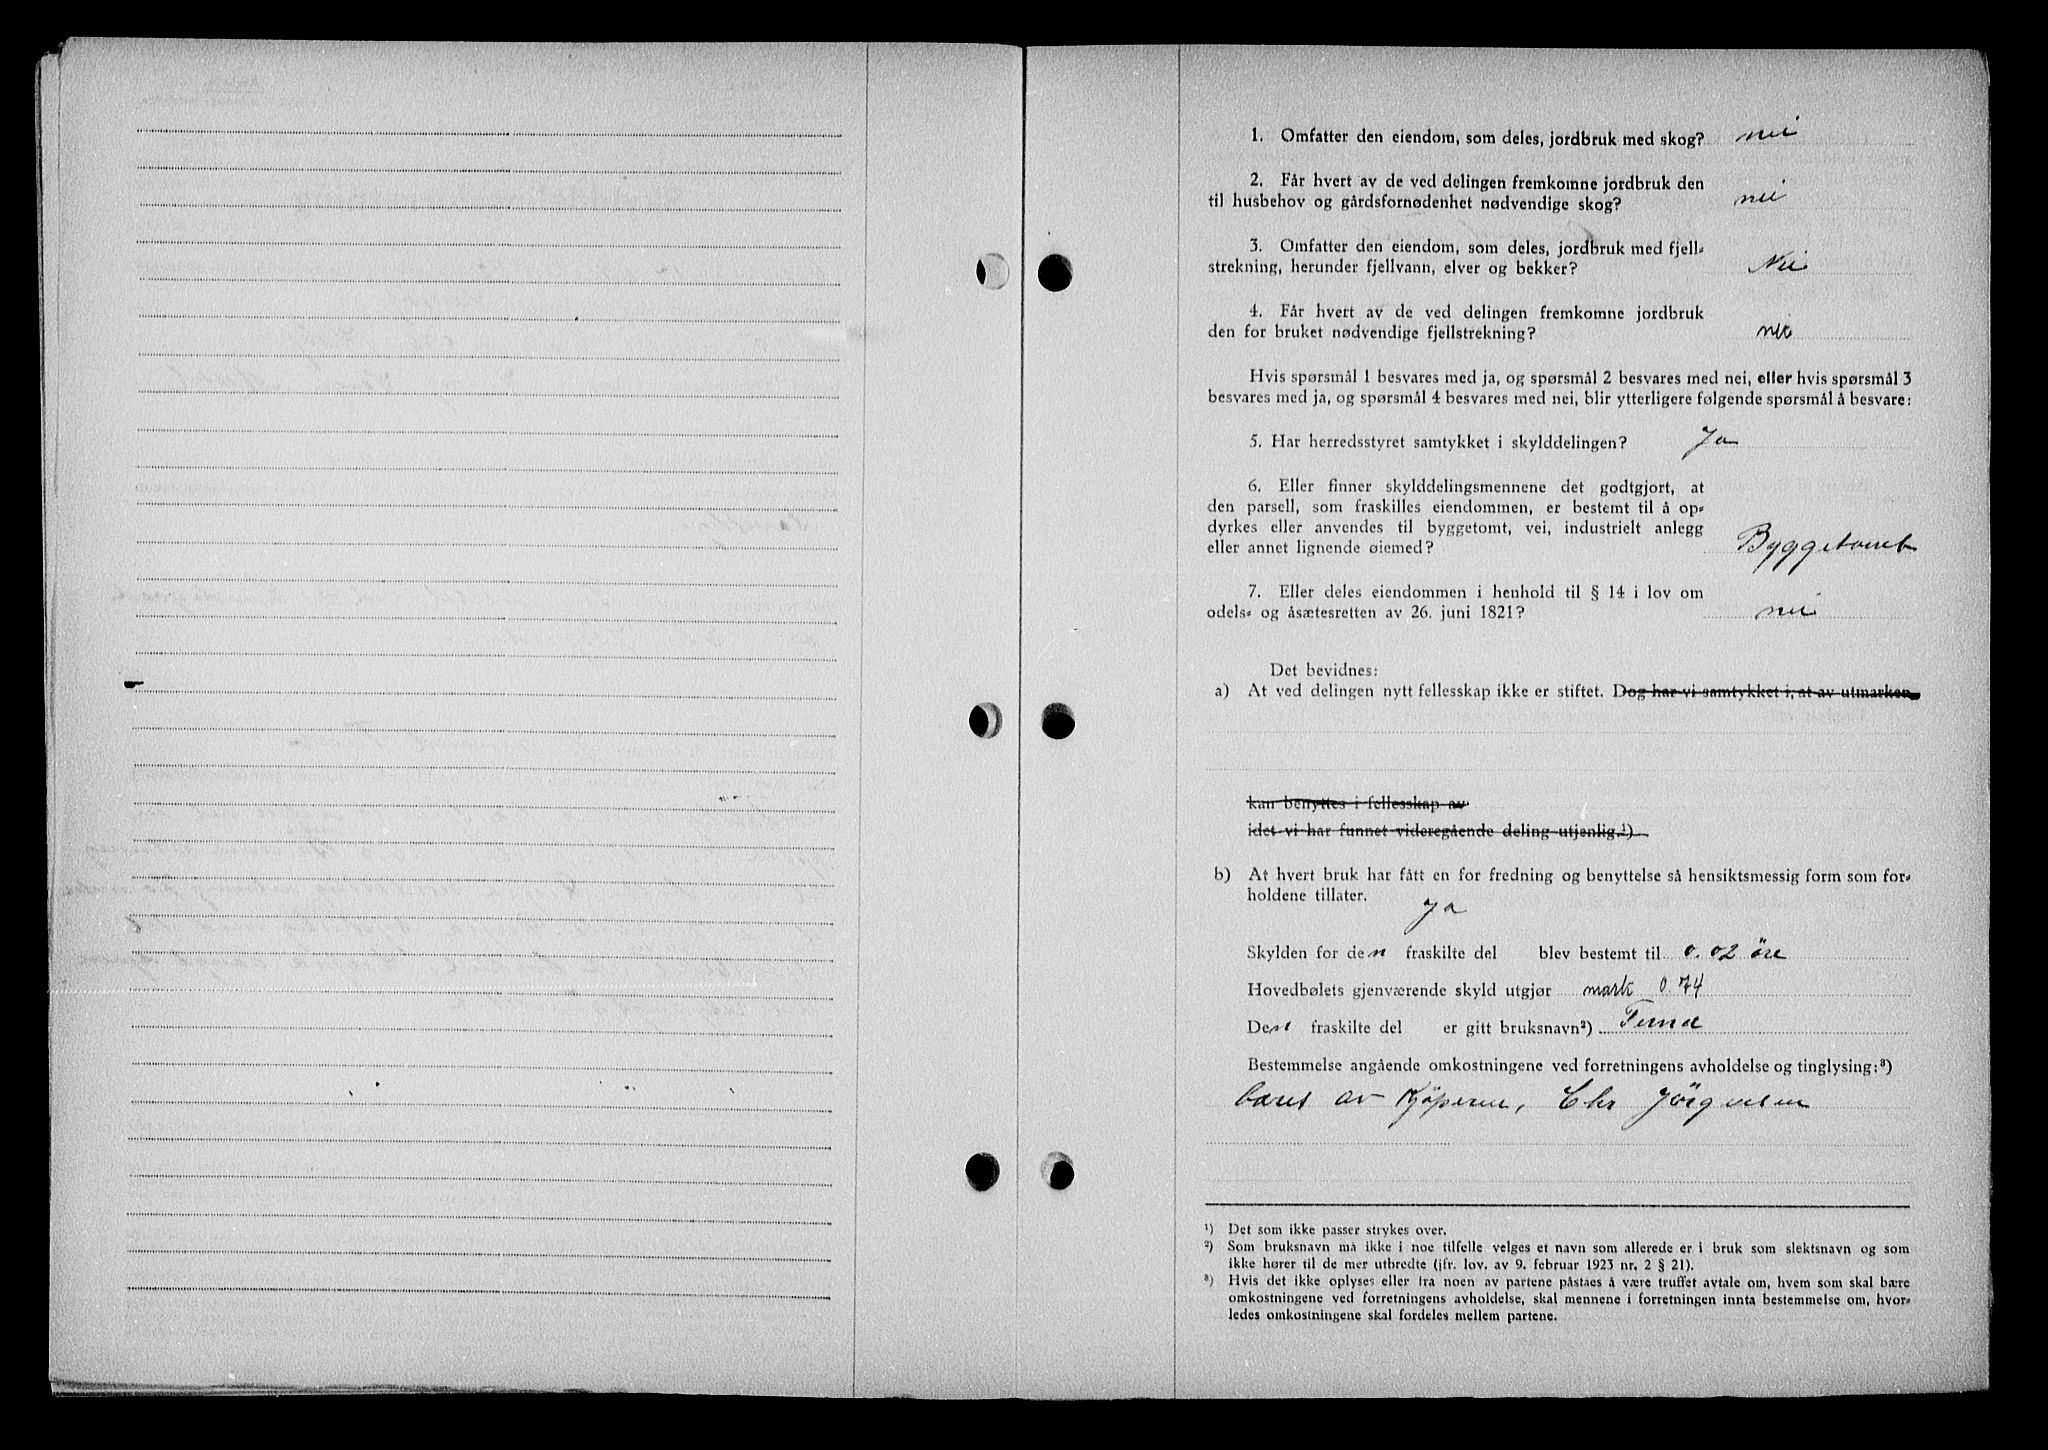 1. Omfatter den eiendom, som deles, jordbruk med skog? nei
2. Får hvert av de ved delingen fremkomne jordbruk den
til husbehov og gårdsfornødenhet nødvendige skog? nei
3. Omfatter den eiendom, som deles, jordbruk med fjell-
strekning, herunder fjellvann, elver og bekker? Nei
4. Får hvert av de ved delingen fremkomne jordbruk
den for bruket nødvendige fjellstrekning? nei
Hvis spørsmål 1 besvares med ja, og spørsmål 2 besvares med nei, eller hvis spørsmål 3
besvares med ja, og spørsmål 4 besvares med nei, blir ytterligere følgende spørsmål å besvare:
5. Har herredsstyret samtykket i skylddelingen? Ja
6. Eller finner skylddelingsmennene det godtgjort, at
den parsell, som fraskilles eiendommen, er bestemt til å op-
dyrkes eller anvendes til byggetomt, vei, industrielt anlegg
eller annet lignende øiemed? Byggetomt
7. Eller deles eiendommen i henhold til § 14 i lov om
odels- og åsætesretten av 26. juni 1821? nei
Det bevidnes:
a) At ved delingen nytt fellesskap ikke er stiftet. Dog har vi samtykket i, at av utmarken
kan benyttes i fellesskap av
idet vi har funnet videregående deling utjenlig.¹)
b) At hvert bruk har fått en for fredning og benyttelse så hensiktsmessig form som for-
holdene tillater. Ja
Skylden for den fraskilte del blev bestemt til 0.02 öre
Hovedbølets gjenværende skyld utgjør mark 0.74
Den fraskilte del er gitt bruksnavn²)
Bestemmelse angående omkostningene ved forretningens avholdelse og tinglysing:³)
av Kjöperen, Chr Jörgensen
¹) Det som ikke passer strykes over.
²) Som bruksnavn må ikke i noe tilfelle velges et navn som allerede er i bruk som slektsnavn og som
ikke hører til de mer utbredte (jfr. lov. av 9. februar 1923 nr. 2 § 21).
³) Hvis det ikke oplyses eller fra noen av partene påstaes å være truffet avtale om, hvem som skal bære
omkostningene ved forretningens avholdelse, skal mennene i forretningen innta bestemmelse om, hvor-
ledes omkostningene skal fordeles mellem partene.